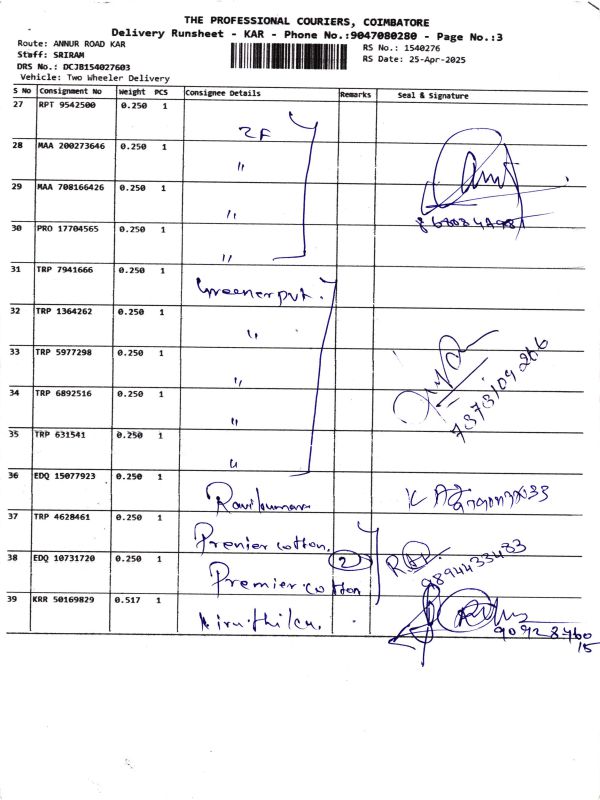 THE PROFESSIONAL COURIERS, COIMBATORE
Delivery Runsheet - KAR - Phone No.:9047080280 - Page No.:3
Route: ANNUR ROAD KAR
RS No.: 1540276
Staff: SRIRAM
RS Date: 25-Apr-2025
DRS No.: DCJB154027603
Vehicle: Two Wheeler Delivery
S No Consignment No Weight PCS Consignee Details Remarks Seal & Signature
27 RPT 9542500 0.250 1 ZF
28 MAA 200273646 0.250 1 "
29 MAA 708166426 0.250 1 "
30 PRO 17704565 0.250 1 "
31 TRP 7941666 0.250 1
32 TRP 1364262 0.250 1 "
33 TRP 5977298 0.250 1 "
34 TRP 6892516 0.250 1 "
7373109266
35 TRP 631541 0.250 1 "
36 EDQ 15077923 0.250 1 Ravikumar
37 TRP 4628461 0.250 1 Premier cotton.
38 EDQ 10731720 0.250 1 Premier cotton 2
9894433483
39 KRR 50169829 0.517 1
90928460
15